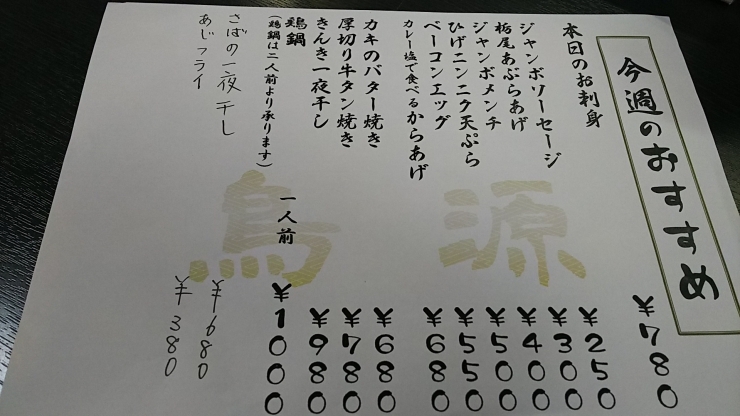 今週のおすすめ
本日のお刺身 ¥780
ジャンボソーセージ ¥250
栃尾あぶらあげ ¥300
ジャンボメンチ ¥400
ひげニンニク天ぷら ¥500
ベーコンエッグ ¥550
カレー塩で食べるからあげ ¥680
カキのバター焼き ¥680
厚切り牛タン焼き ¥780
きんき一夜干し ¥980
鶏鍋 一人前 ¥1000
(鶏鍋は二人前より承ります)
さばの一夜干し ¥680
あじフライ ¥380
鳥源